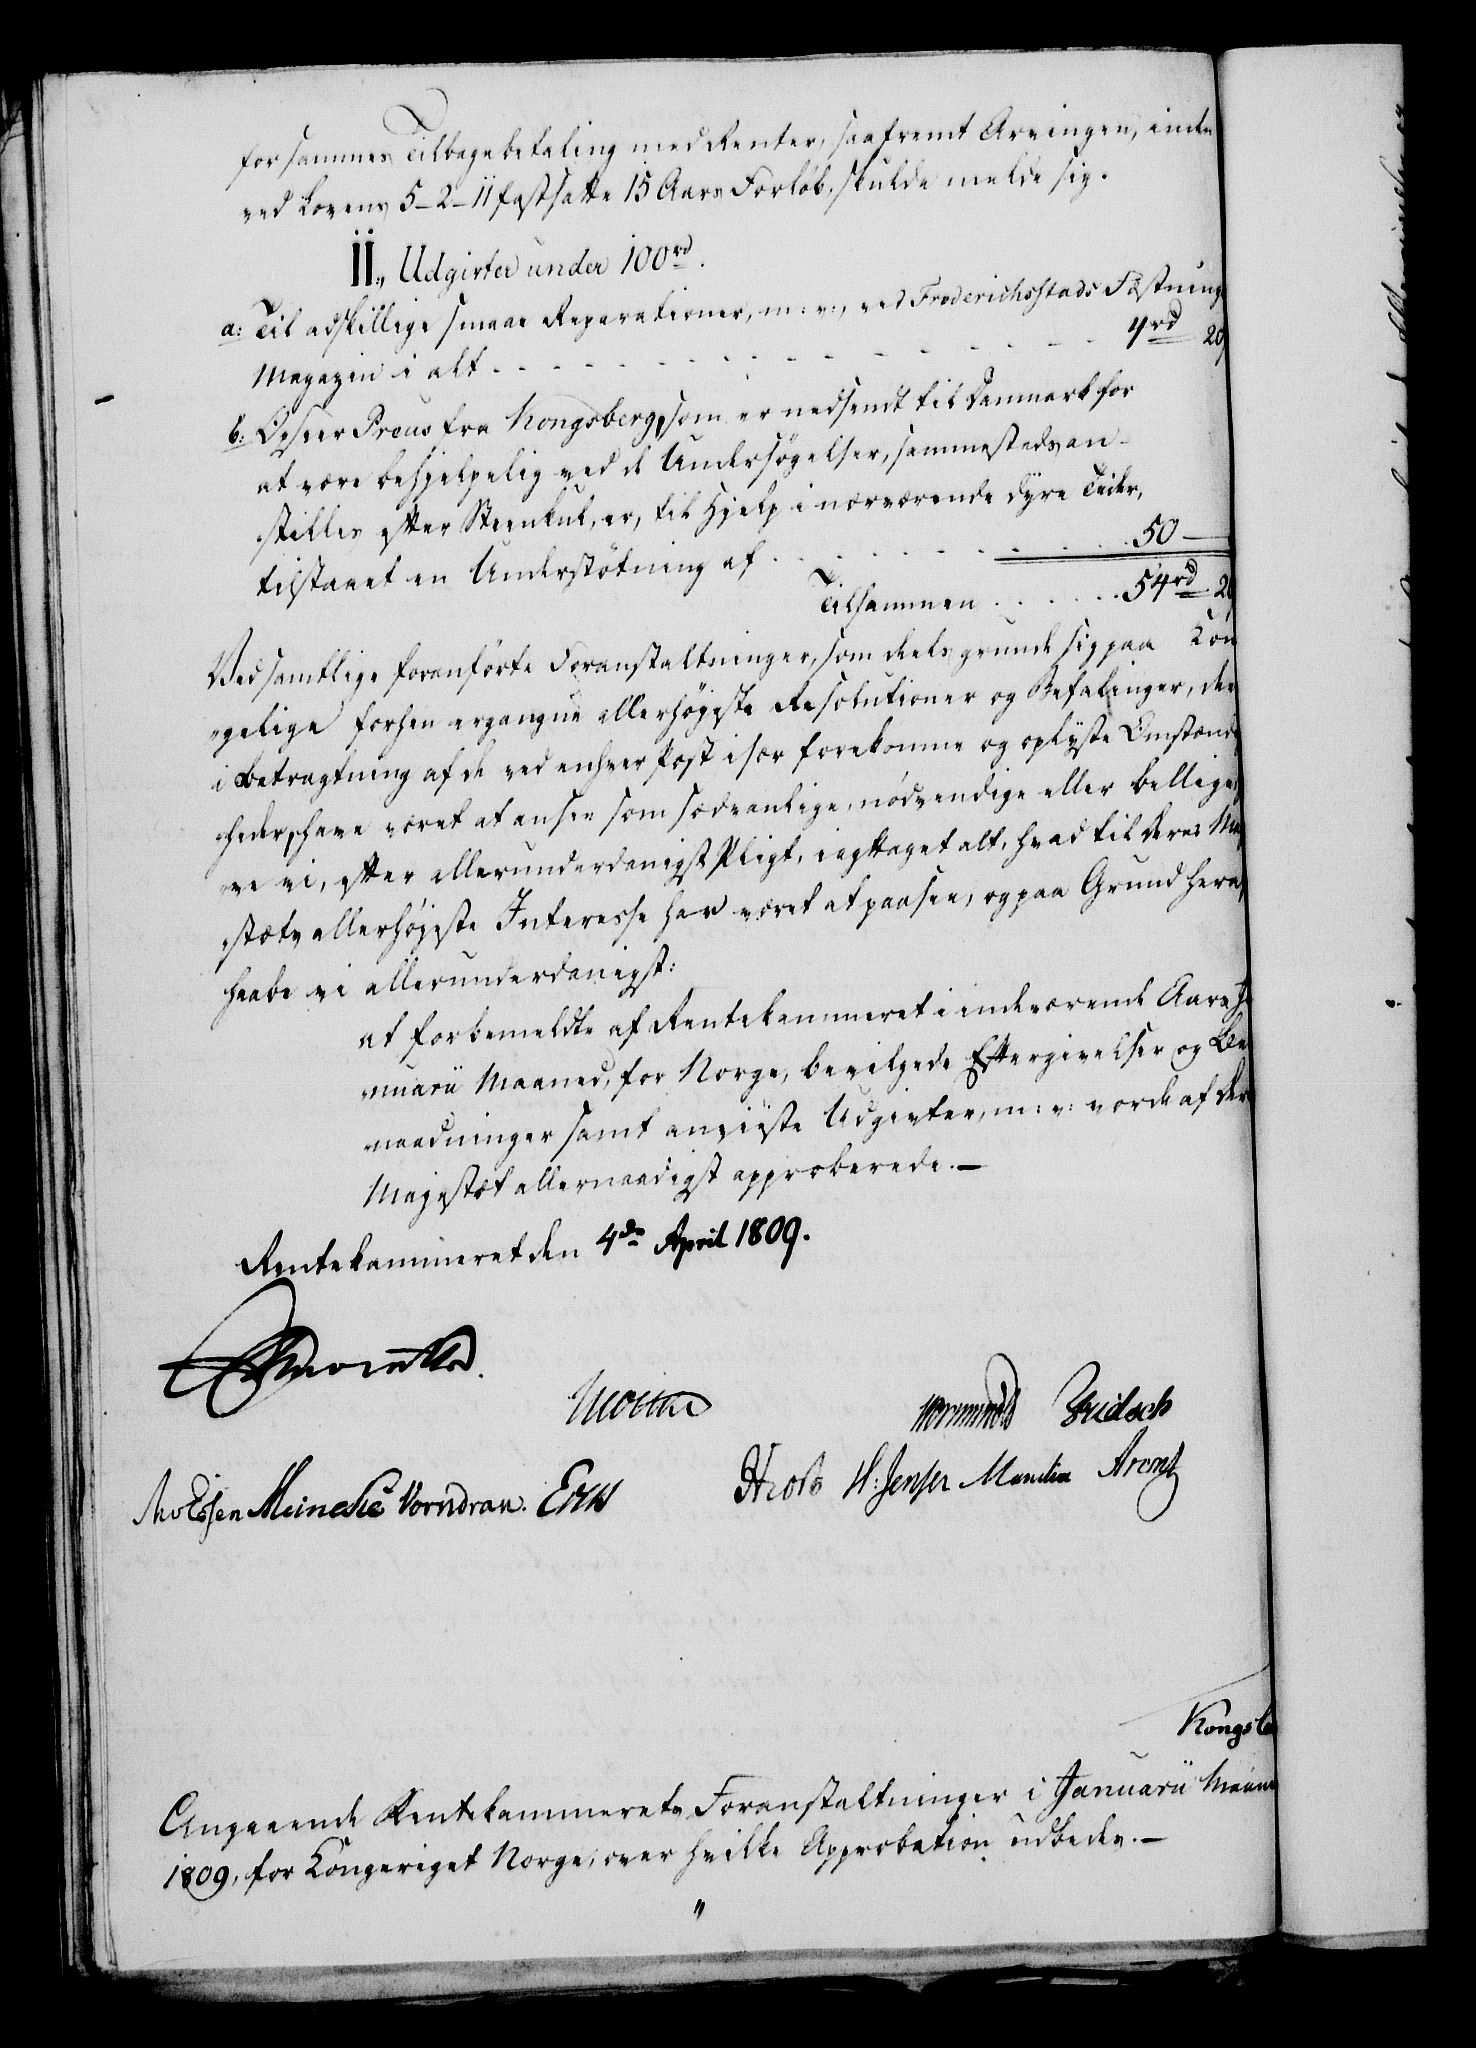 for sammes Tilbagebetaling med Renter, saafremt Arvingen, inden
ved Lovens 5-2-11 fastsatte 15 Aars Forløb, skulde melde sig.
II., Udgivter under 100rd.
a: Til adskillige smaae Reparationer, m: v:, ved Frederichsstads Fæstnings
Magazin i alt . . . . . . . . . . 4rd 20
b: Opseer Preus fra Kongsberg, som er nedsendt til Danmark for
at være behjelpelig ved de Undersøgelser, sammesteds an-
stilles efter Steenkul, er, til Hjelp i nærværende dyre Tider,
tilstaaet en Understøtning af . . . . . . 50 —
Tilsammen . . . . . . 54rd 20
Ved samtlige foranførte Foranstaltninger, som deels grunde sig paa Kon
gelige forhen ergangne allerhøjeste Resolutioner og Befalinger, deels
i Betragtning af de ved enhver Post især forekomne og oplyste Omstændig
heder, have været at ansee som sædvanlige, nødvendige eller billige,
ve vi, efter allerunderdanigst Pligt, iagttaget alt, hvad til Deres Maj
estæts allerhøjeste Interesse har været at paasee, og paa Grund heraf
haabe vi allerunderdanigst:
at forbemeldte af Rentekammeret i indeværende Aars Ja
nuarii Maaned, for Norge, bevilgede Eftergivelser og Be
naadninger samt anviiste Udgivter, m: v: vorde af Deres
Majestæt allernaadigst approberede. —
Rentekammeret den 4de April 1809.
Wormskiold Fridsch
Meincke Vorndran.
H: Jensen Manthe Arentz
Kongsb
Angaaende Rentekammerets Foranstaltninger i Januarii Maaned
1809, for Kongeriget Norge, over hvilke Approbation udbedes. —
"